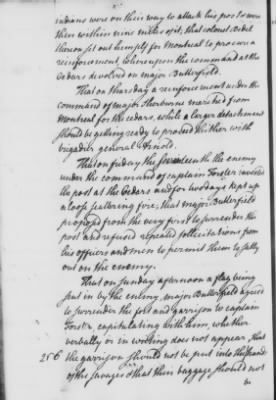 indians were on their way to attack his post & were
then within nine miles of it; that colonel Bedel
thereon set out himself for Montreal to procure a
reinforcement whereupon the command at the
Cedars devolved on major Butterfield.
That on thursday a reinforcement under the
command of major Sherburne marched from
Montreal for the cedars, while a larger detachment
should be getting ready to proceed thither with
brigadier general Arnold.
That on friday the seventeenth the enemy
under the command of captain Forster invested
the post at the Cedars and for two days kept up
a loose scattering fire; that major Butterfield
proposed from the very first to surrender the
post and refused repeated sollicitations from
his officers and men to permit them to sally
out on the enemy.
That on sunday afternoon a flag being
sent in by the enemy, major Butterfield agreed
to surrender the fort and garrison to captain
Forster, capitulating with him, whether
verbally or in writing does not appear, that
256 the garrison should not be put into the hands
of the savages & that their baggage should not
be